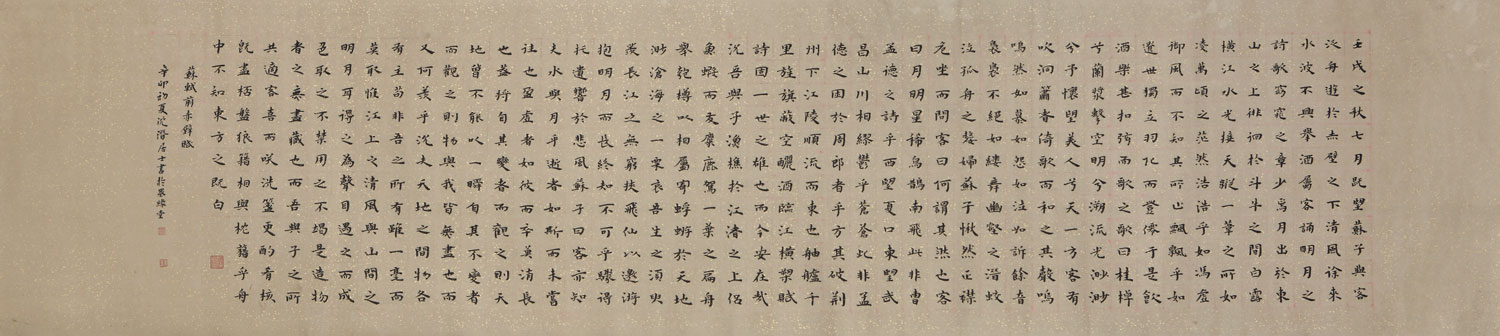 壬戌之秋七月既望蘇子與客
泛舟遊於赤壁之下清風徐來
水波不興舉酒屬客誦明月之
詩歌窈窕之章少焉月出於東
山之上徘徊於斗牛之間白露
橫江水光接天縱一葦之所如
凌萬頃之茫然浩浩乎如馮虛
御風而不知其所止飄飄乎如
遺世獨立羽化而登僊于是飲
酒樂甚扣弦而歌之歌曰桂棹
兮蘭槳擊空明兮溯流光渺渺
兮予懷望美人兮天一方客有
吹洞簫者倚歌而和之其聲嗚
嗚然如慕如怨如泣如訴餘音
裊裊不絕如縷舞幽壑之潛蛟
泣孤舟之嫠婦蘇子愀然正襟
危坐而問客曰何謂其然也客
曰月明星稀烏鵲南飛此非曹
孟德之詩乎西望夏口東望武
昌山川相繆鬱乎蒼蒼此非孟
德之困於周郎者乎方其破荊
州下江陵順流而東也舳艫千
里旌旗蔽空釃酒臨江橫槊賦
詩固一世之雄也而今安在哉
況吾與子漁樵於江渚之上侶
魚蝦而友麋鹿駕一葉之扁舟
舉匏樽以相屬寄蜉蝣於天地
渺滄海之一粟哀吾生之須臾
羨長江之無窮挾飛仙以遨遊
抱明月而長終知不可乎驟得
托遺響於悲風蘇子曰客亦知
夫水與月乎逝者如斯而未嘗
往也盈虛者如彼而卒莫消長
也蓋將自其變者而觀之則天
地曾不能以一瞬自其不變者
而觀之則物與我皆無盡也而
又何羨乎況夫天地之間物各
有主苟非吾之所有雖一毫而
莫取惟江上之清風與山間之
明月耳得之為聲目遇之而成
色取之不禁用之不竭是造物
者之無盡藏也而吾與子之所
共適客喜而笑洗盞更酌肴核
既盡杯盤狼籍相與枕籍乎舟
中不知東方之既白
蘇軾前赤壁賦
辛卯初夏沈潛居士書於緣堂